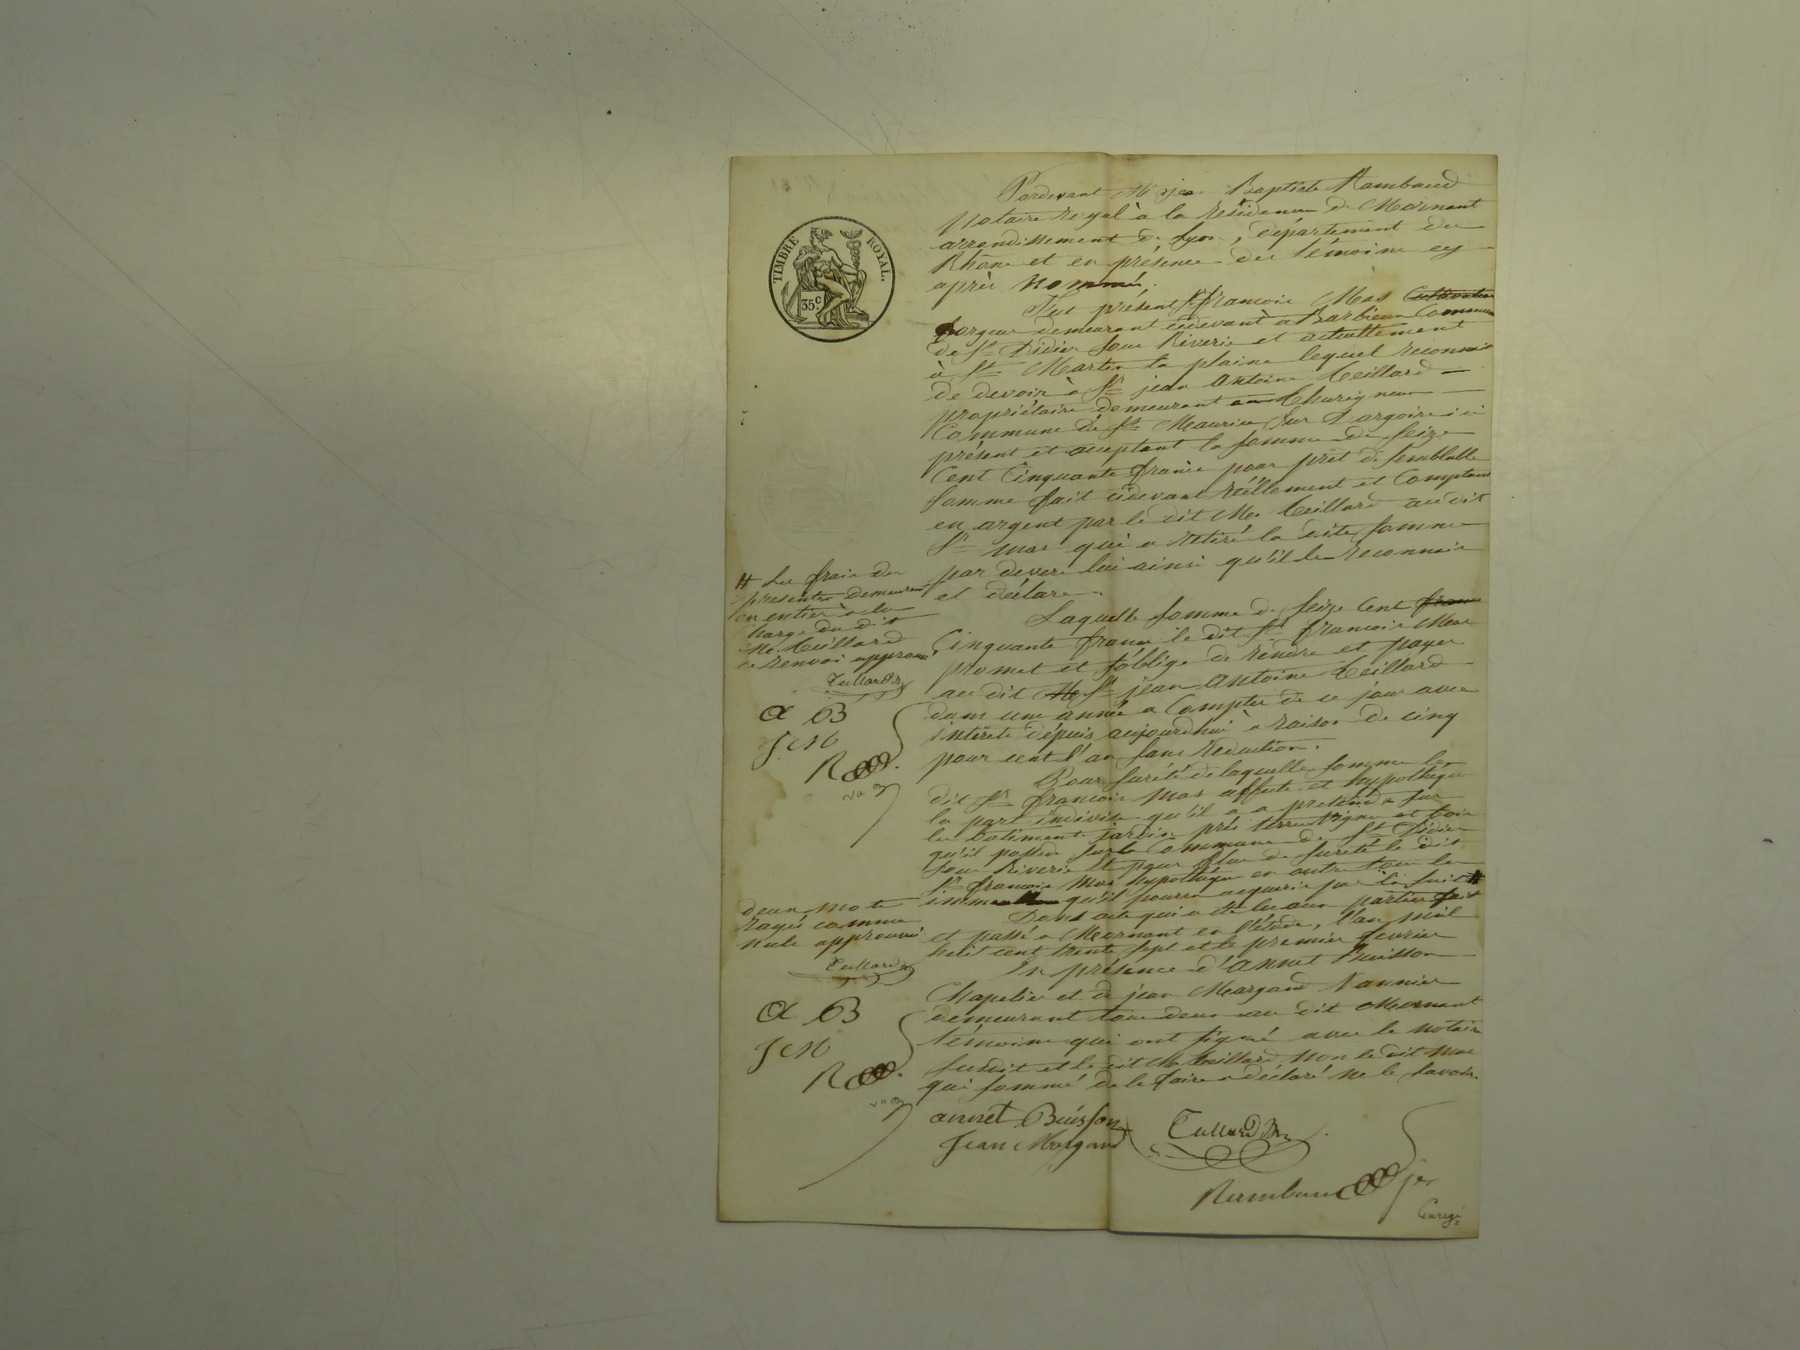 TIMBRE ROYAL.
35c
Pardevant Me Baptiste Rambaud
Notaire royal à la résidence de Mornant
arrondissement de Lyon, département du
Rhône et en présence des témoins cy
après nommé.
Fut présent Sr françois Mas Cultivateur
forgeur demeurant cidevant à Barbieux Commune
de St Didier sous Riverie et actuellement
à St Martin la plaine lequel reconnait
de devoir à Sr jean Antoine Teillard
propriétaire demeurant au Churigneux
Commune de St Maurice sur Dargoire ici
présent et acceptant la somme de seize
Cent Cinquante francs pour prêt de semblable
somme fait cidevant réellement et Comptant
en argent par le dit Mr Teillard au dit
Sr mas qui a retiré la dite somme
par devers lui ainsi qu'il le reconnait
et déclare.
Laquelle somme de seize Cent francs
Cinquante francs le dit Sr françois Mas
promet et s'oblige de rendre et payer
au dit Mr Sr jean Antoine Teillard
dans une année a Compter de ce jour avec
intérêts dépuis aujourdhui à raison de cinq
pour cent l'an sans réduction.
Pour sureté de laquelle somme le
dit Sr françois Mas affecte et hypothèque
la part indivise qu'il a a prétendre sur
les batiments jardin prés terre vigne et bois
qu'il possede sur la Commune de St Didier
sous Riverie Et pour plus de sureté le dit
Sr françois Mas hypothéque en outre tous les
immeubles qu'il pourra acquerir par la suite #
Dont acte qui a été lu aux parties fait
et passé a Mornant en l'étude, l'an mil
huit cent trente sept et le premier fevrier
En présence d'Annet Buisson
Chapelier et de jean Margand Vannier
demeurant tous deux au dit Mornant
témoins qui ont signé avec le notaire
susdit et le dit Mr Teillard non le dit mas
qui sommé de le faire a déclaré ne le savoir.
# Les frais des
présentes demeurent
en entier à la
charge du dit
Mr Teillard
ce renvoi approuvé
Teillard
a B
J M
R
deux mots
rayés comme
nuls approuvés
Teillard
a B
J M
R
annet Buisson
Jean Margand
Teillard
Rambaud
Enregé